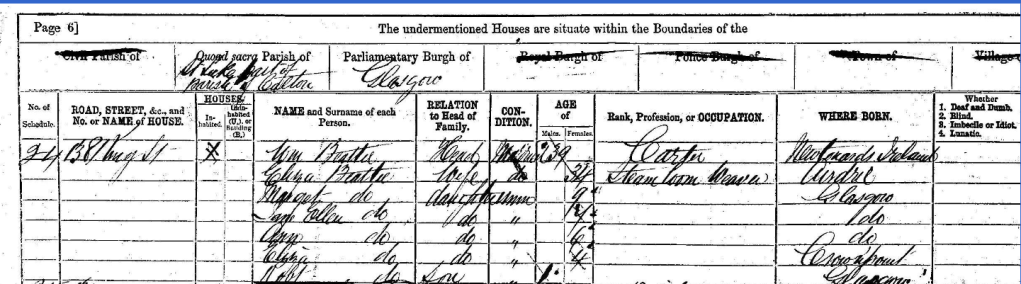 Page 6] The undermentioned Houses are situate within the Boundaries of the
Civil Parish of Quoad sacra Parish of Parliamentary Burgh of Royal Burgh of Police Burgh of Town of Village
St Lukes part of Parish of Calton Glasgow
No. of Schedule. ROAD, STREET, &c., and No. or NAME of HOUSE. HOUSES. Inhabited. Uninhabited (U.), or Building (B.) NAME and Surname of each Person. RELATION to Head of Family. CONDITION. AGE of Males. Females. Rank, Profession, or OCCUPATION. WHERE BORN. Whether 1. Deaf and Dumb. 2. Blind. 3. Imbecile or Idiot. 4. Lunatic.
24 St X Wm Beattie Head 39 Carter Ireland
Eliza Beattie Wife do 34 Steam loom Weaver Airdrie
Margat do daughter 9 Glasgow
Jane Ellen do do " do
Ann do do " 6 do
Eliza do do " 4 Crownpoint
Robt do Son Glasgow